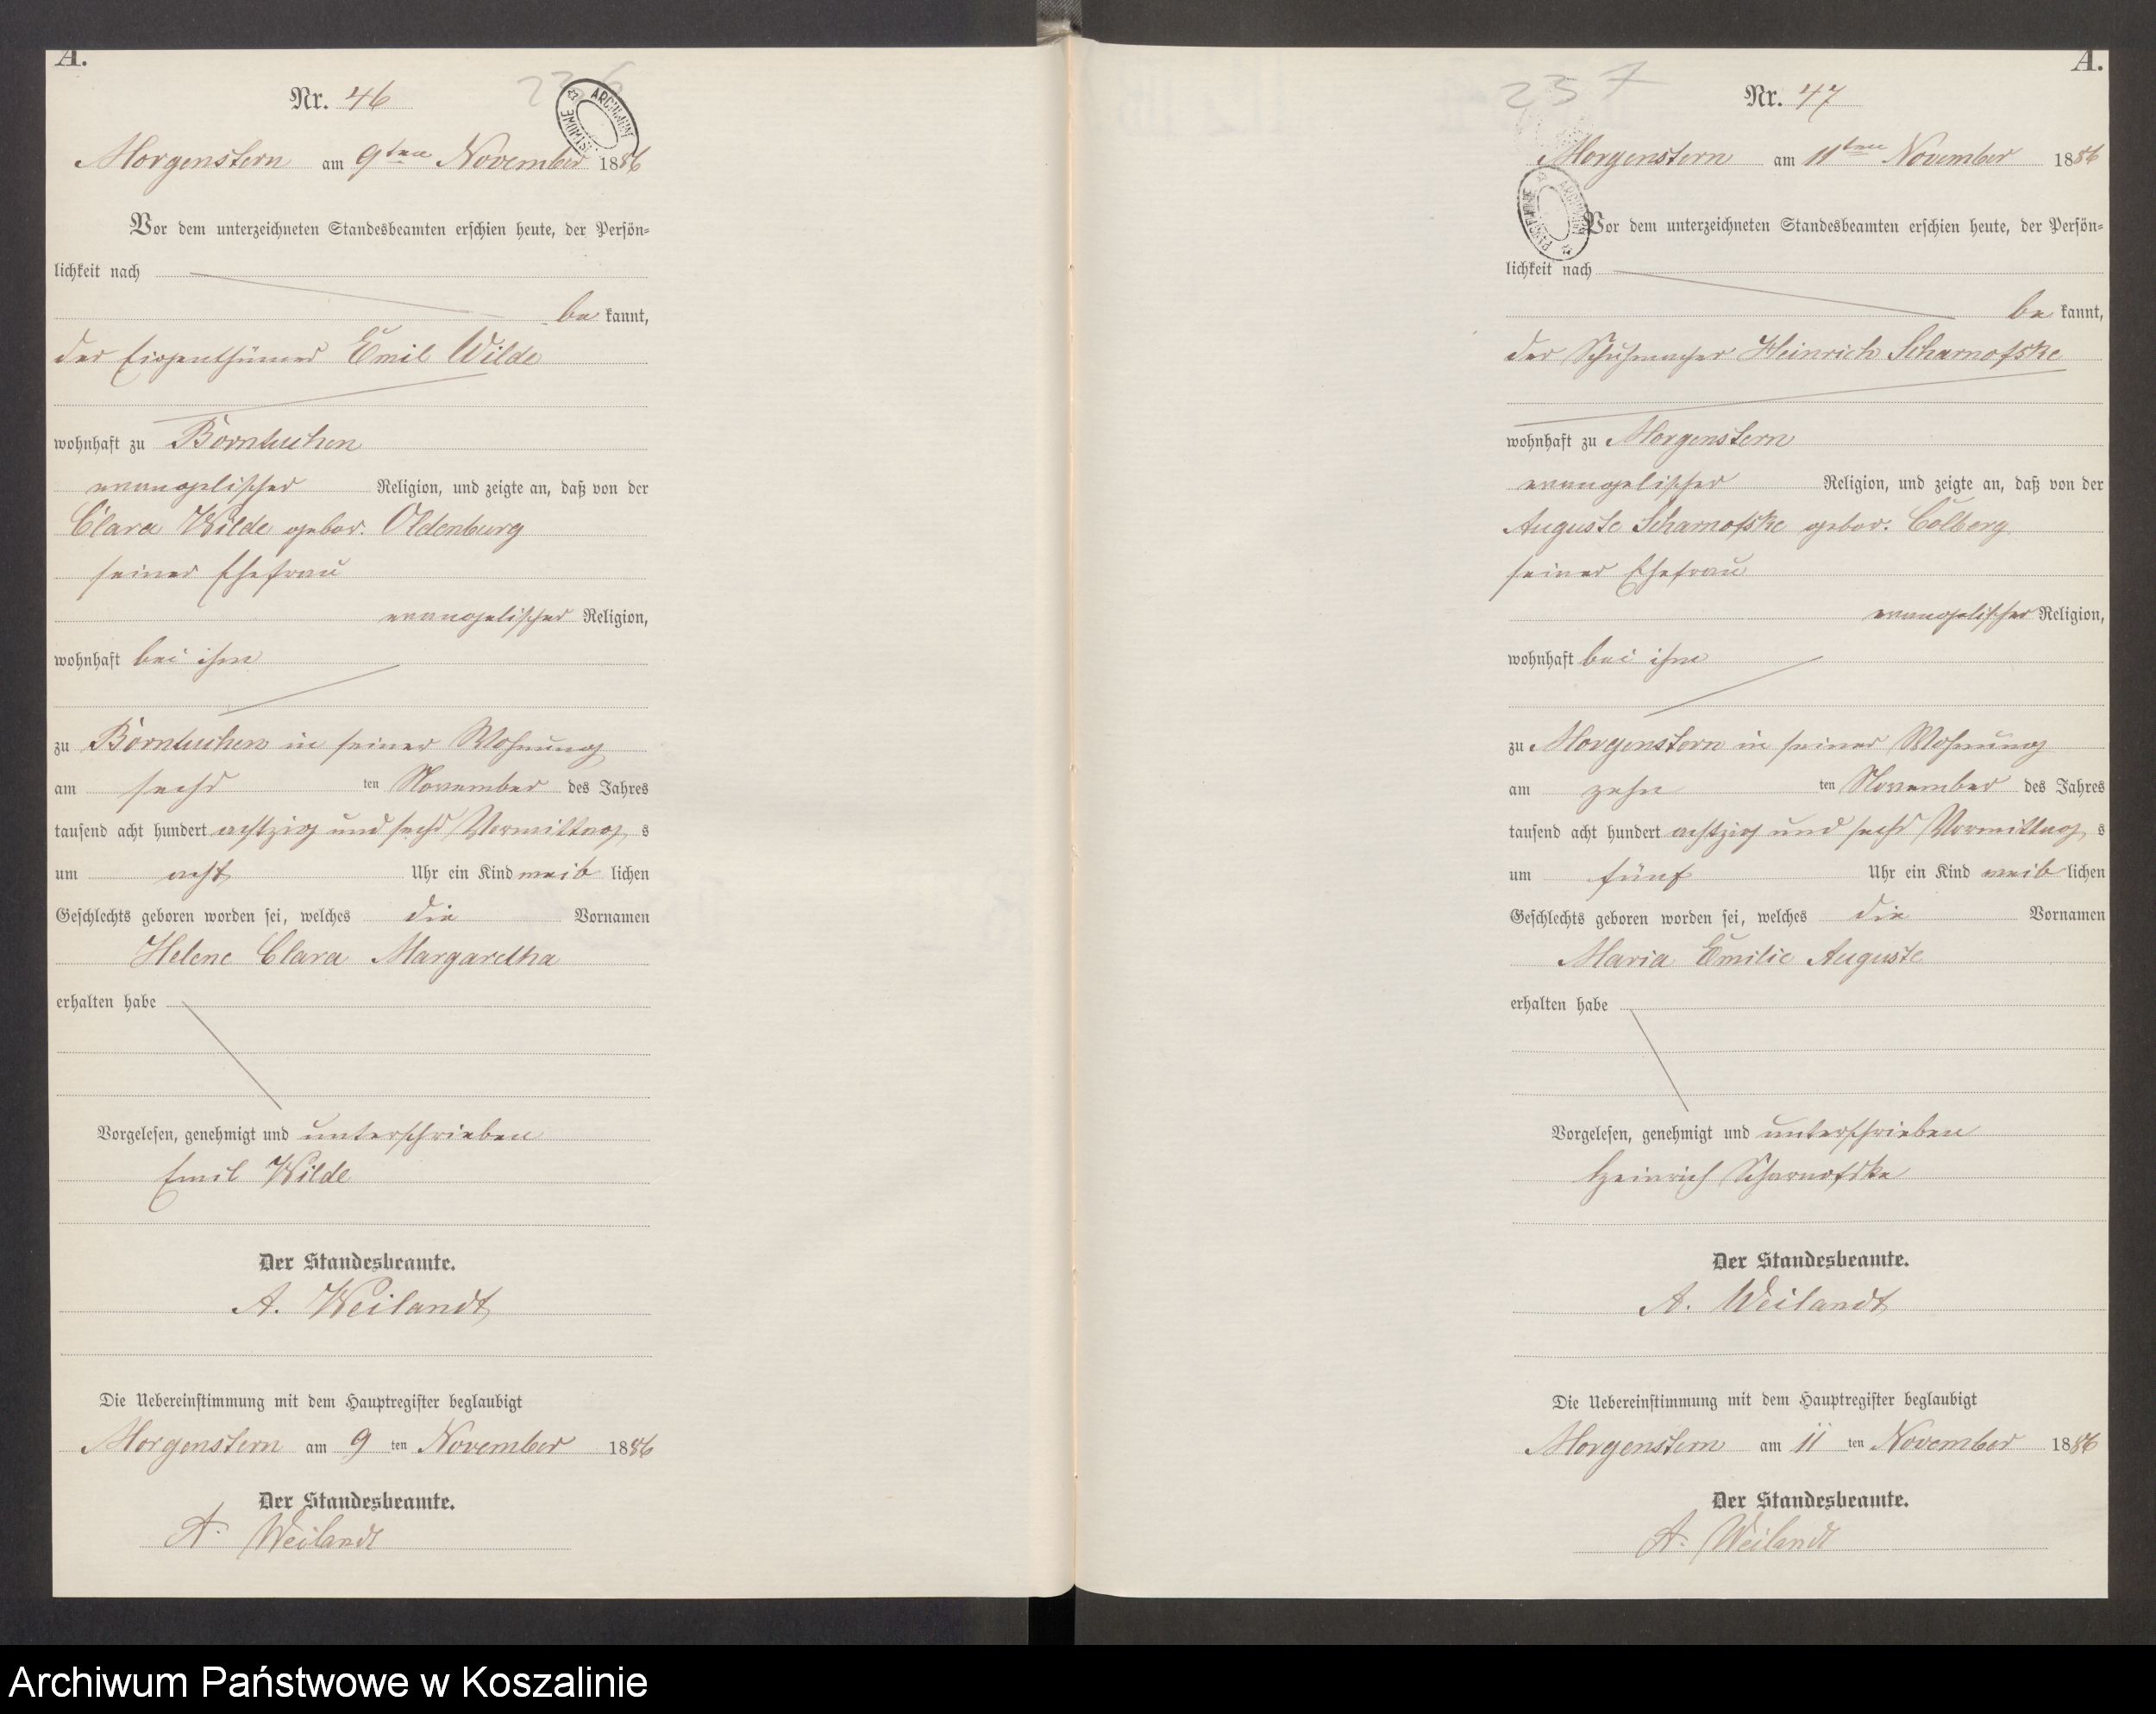 A.
236
Nr. 46
Morgenstern am 9ten November 1886
Vor dem unterzeichneten Standesbeamten erschien heute, der Persön-
lichkeit nach
be kannt,
der Eigenthümer Emil Wilde
wohnhaft zu Borntuchen
evangelischer Religion, und zeigte an, daß von der
Clara Wilde gebor. Oldenburg
seiner Ehefrau
evangelischer Religion,
wohnhaft bei ihm
zu Borntuchen in seiner Wohnung
am sechs ten November des Jahres
tausend acht hundert achtzig und sechs Vormittag s
um acht Uhr ein Kind weib lichen
Geschlechts geboren worden sei, welches die Vornamen
Helene Clara Margaretha
erhalten habe
Vorgelesen, genehmigt und unterschrieben
Emil Wilde
Der Standesbeamte.
A. Weilandt
Die Uebereinstimmung mit dem Hauptregister beglaubigt
Morgenstern am 9 ten November 1886
Der Standesbeamte.
A. Weilandt
A.
237
Nr. 47
Morgenstern am 11ten November 1886
Vor dem unterzeichneten Standesbeamten erschien heute, der Persön-
lichkeit nach
be kannt,
der Schuhmacher Heinrich Scharnofske
wohnhaft zu Morgenstern
evangelischer Religion, und zeigte an, daß von der
Auguste Scharnofske gebor. Colberg
seiner Ehefrau
evangelischer Religion,
wohnhaft bei ihm
zu Morgenstern in seiner Wohnung
am zehn ten November des Jahres
tausend acht hundert achtzig und sechs Vormittag s
um fünf Uhr ein Kind weib lichen
Geschlechts geboren worden sei, welches die Vornamen
Maria Emilie Auguste
erhalten habe
Vorgelesen, genehmigt und unterschrieben
Heinrich Scharnofske
Der Standesbeamte.
A. Weilandt
Die Uebereinstimmung mit dem Hauptregister beglaubigt
Morgenstern am 11 ten November 1886
Der Standesbeamte.
A. Weilandt
Archiwum Państwowe w Koszalinie